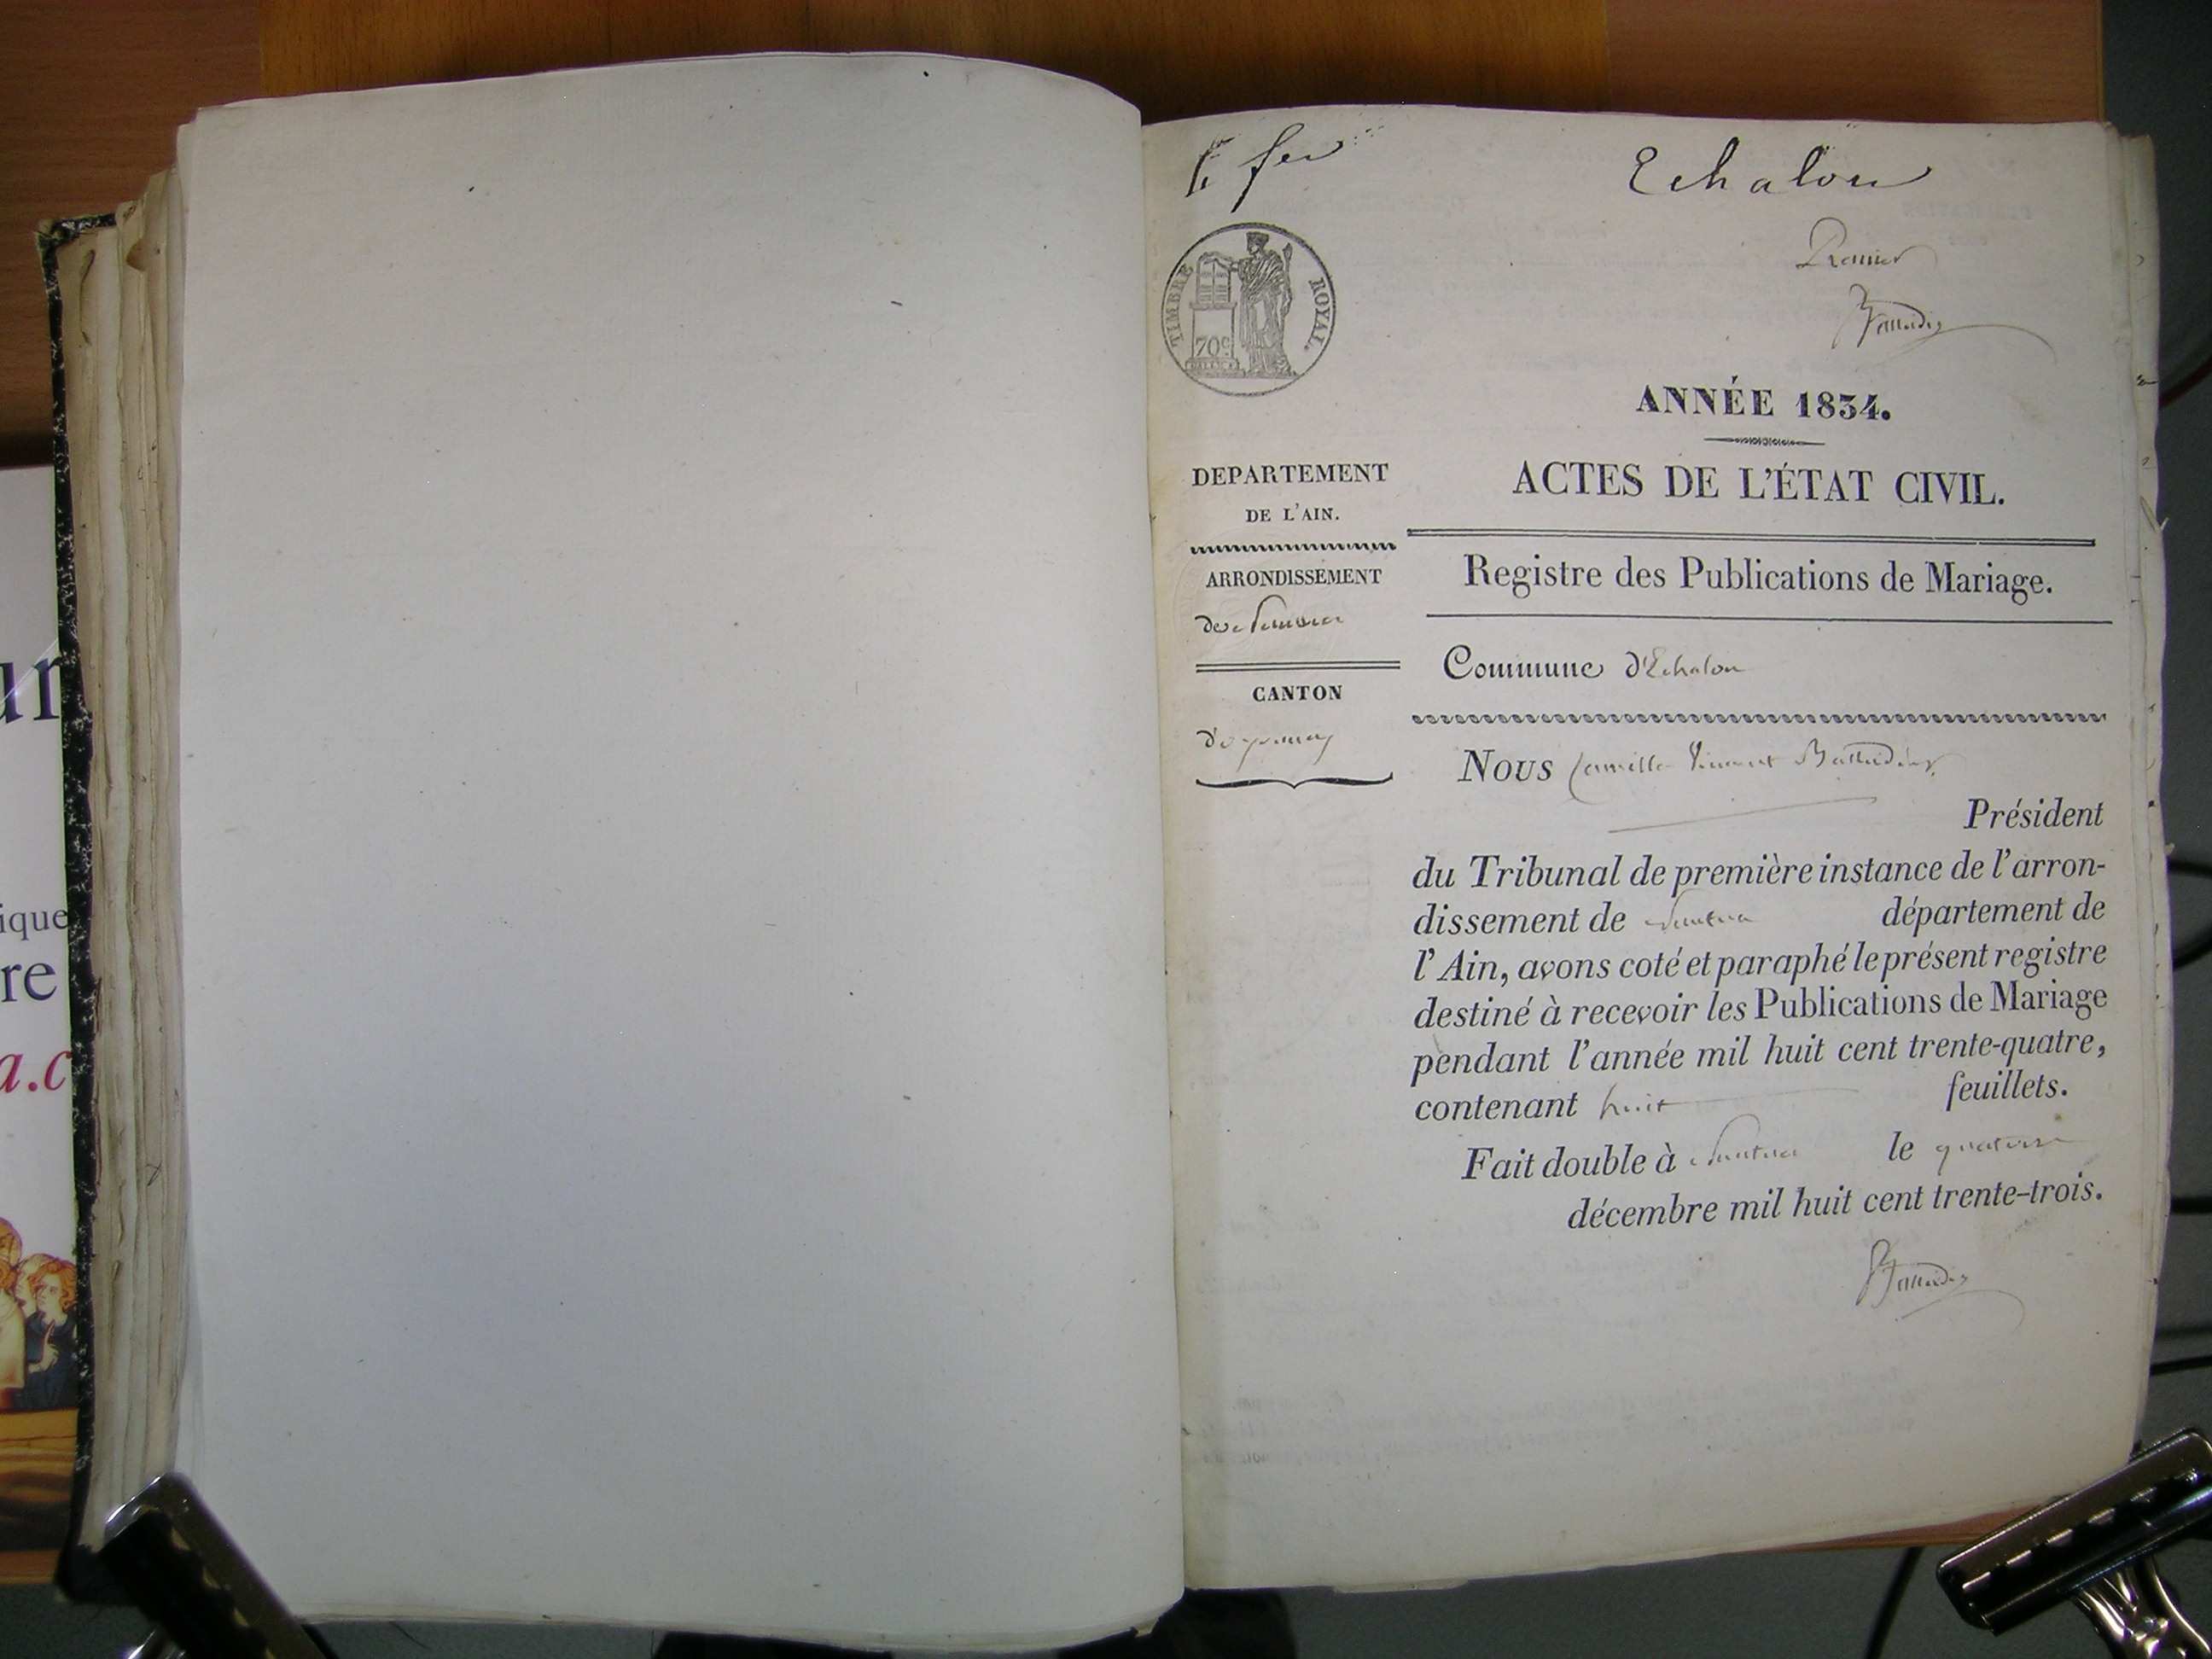 ur
ique
re
a.c
Echalon
Premier
TIMBRE ROYAL.
70c
ANNÉE 1834.
ACTES DE L'ÉTAT CIVIL.
DEPARTEMENT
DE L'AIN.
Registre des Publications de Mariage.
ARRONDISSEMENT
de Nantua
Commune d'Echalon
CANTON
d'oyonnax
Nous Camille Vincent
Président
du Tribunal de première instance de l'arron-
dissement de Nantua département de
l'Ain, avons coté et paraphé le présent registre
destiné à recevoir les Publications de Mariage
pendant l'année mil huit cent trente-quatre,
contenant huit feuillets.
Fait double à Nantua le quatorze
décembre mil huit cent trente-trois.